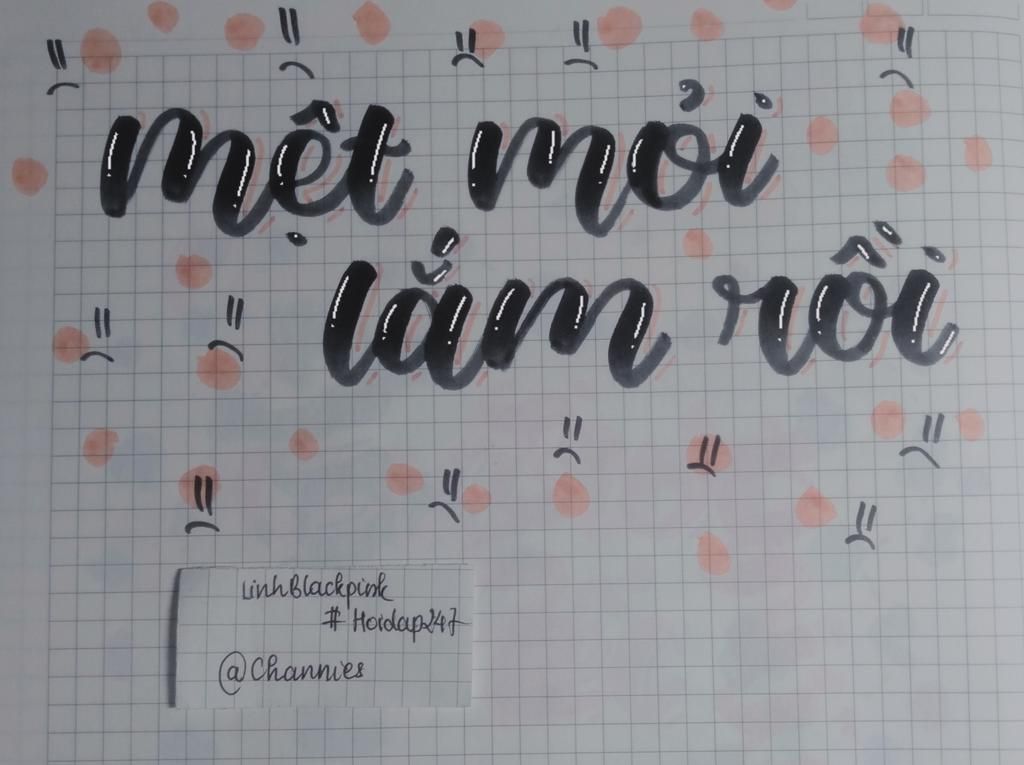 mệt mỏi
lắm rồi
LinhBlackpink
# Hoidap247
@Channies